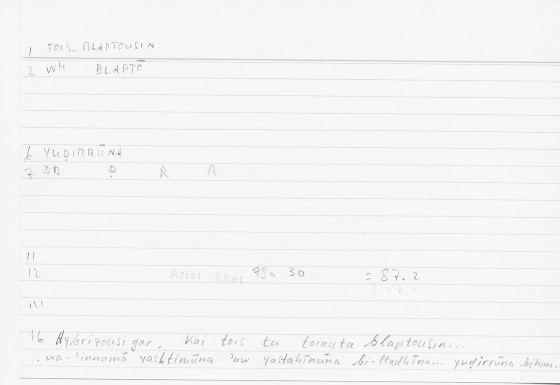 1 TOIS_BLAPTOUSIN
2 WH BLAPTŌ
6 YUḌIRRŪNA
7 DD Ḍ R R
11
12 Arist Rhet 79a 30 = 87.2
14
16 Hybrizousi gar. Kai tois ta toiauta blaptousin...
.. wa-'innamā yashtimūna 'aw yastahīnūna bi-lladhīna... yuḍirrūna bihim.